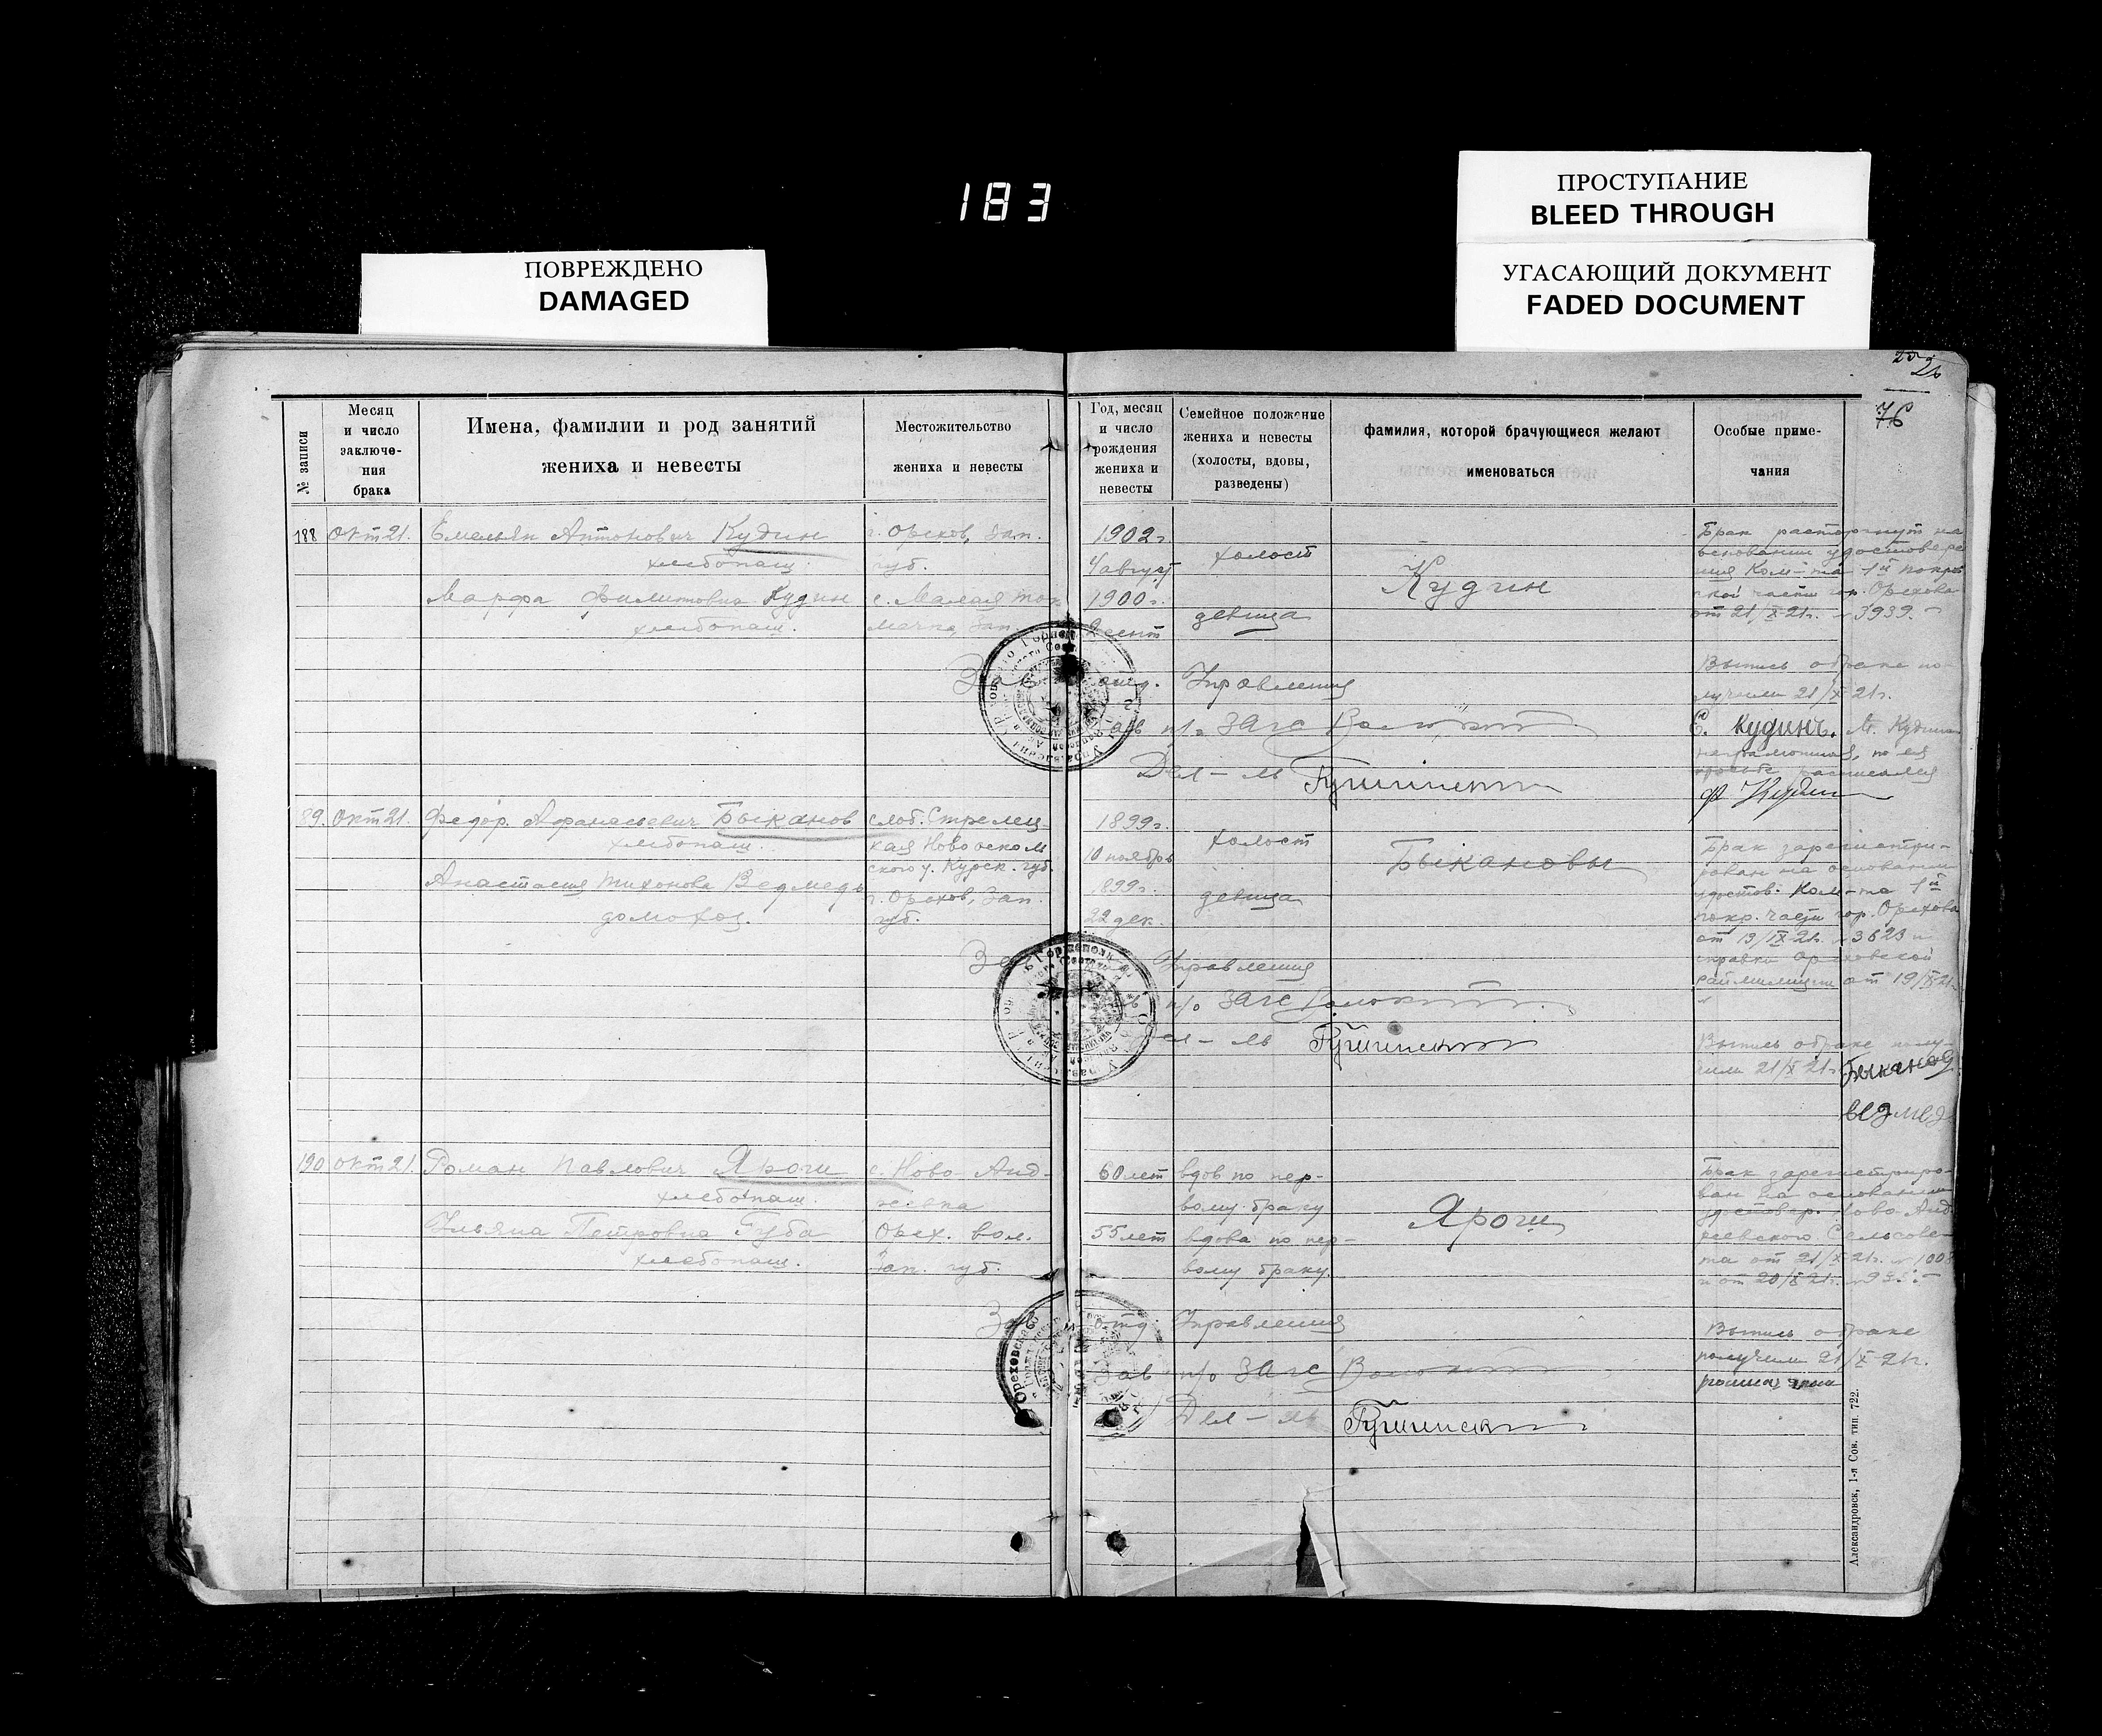 183
ПРОСТУПАНИЕ
BLEED THROUGH
ПОВРЕЖДЕНО
DAMAGED
УГАСАЮЩИЙ ДОКУМЕНТ
FADED DOCUMENT
26
76
№ записи
Месяц
и число
заключе-
ния
брака
Имена, фамилии и род занятий
жениха и невесты
Местожительство
жениха и невесты
Год, месяц
и число
рождения
жениха и
невесты
Семейное положение
жениха и невесты
(холосты, вдовы,
разведены)
фамилия, которой брачующиеся желают
именоваться
Особые приме-
чания
188 Окт 21. Емельян Антонович Кудин
хлебопаш.
Марфа Филиповна Кудин
хлебопаш.
г. Орехов, Зап.
губ.
с. Малая Ток
мачка, Зап.
1902 г.
4 август
1900 г.
сент
холост
девица
Кудин
Брак расторгнут на
основании удостовере
ния Ком-та 1й покр
ской части гор. Орехова
от 21/X 21 г. № 3939.
Выпись о браке по-
лучили 21/X 21 г.
Е. Кудинъ. М. Кудин
неграмотная, по ея
просьбе расписался
Ф Кудин
Управления
п/о Загс
Дел-ль
89. Окт 21. Федор Афанасьевич Быканов
хлебопаш.
Анастасия Тихонова Ведмедь
домохоз.
слоб. Стрелец-
кая Новооскол
ского у. Курск. губ.
г. Орехов, Зап.
губ.
1899 г.
10 ноябрь
1899 г.
22 дек.
холост
девица
Быкановы
Брак зарегистри-
рован на основании
удостов. Ком-та 1й
покр. части гор. Орехова
от 19/IX 21 г. № 3623 и
справки Ореховской
раймилиции от 19/IX 21 г.
Выпись о браке полу-
чили 21/X 21 г. Быканов
Ведмедь
Управления
п/о Загс
Дел-ль
190 Окт 21. Роман Павлович Ярош
хлебопаш.
Ульяна Петровна Губа
хлебопаш.
с. Ново-Анд-
реевка
Орех. вол.
Зап. губ.
60 лет
55 лет
вдов по пер-
вому браку
вдова по пер-
вому браку.
Ярош
Брак зарегистриро-
ван на основании
удостовер. Ново-Анд
реевского Сельсове-
та от 21/X 21 г. № 1008
и от 20/X 21 г.
Выпись о браке
получили 21/X 21 г.
Зав отд. Управления
Зав п/о Загс
Дел-ль
Александровск, 1-я Сов. тип. 722.